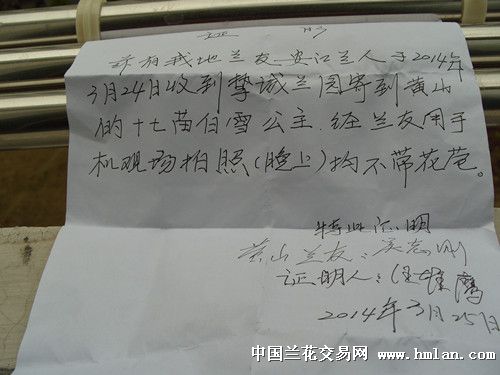 证明
兹有我地兰友_安江兰人于2014年
3月24日收到挚诚兰园寄到黄山
的十七苗白雪公主.经兰友用手
机现场拍照(晚上)均不带花苞。
特此证明
黄山兰友:吴志刚
证明人:汪 鹰
2014年3月25日
中国兰花交易网 www.hmlan.com